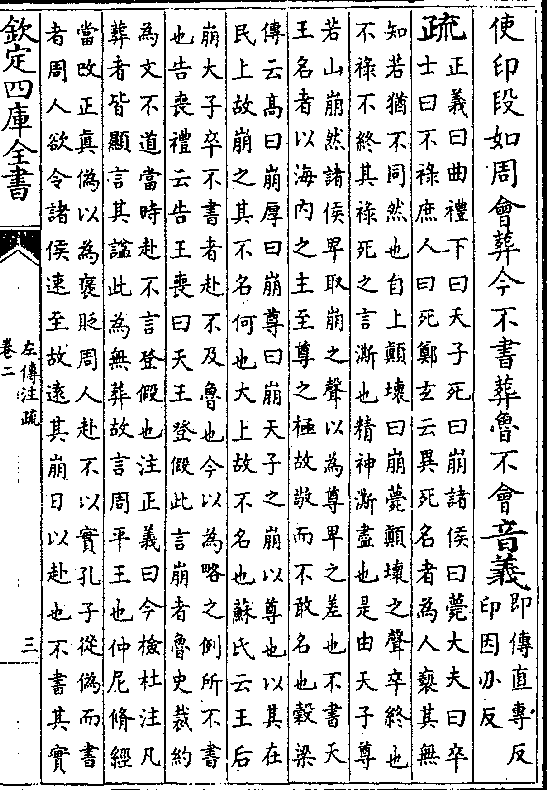 使印段如周會葬今不書葬魯不會音義即傳直專反
印因刃反
疏正義曰曲禮下曰天子死曰崩諸侯曰薨大夫曰卒
士曰不祿庶人曰死鄭玄云異死名者為人褻其無
知若猶不同然也自上顛壞曰崩薨顛壞之聲卒終也
不祿不終其祿死之言澌也精神澌盡也是由天子尊
若山崩然諸侯卑取崩之聲以為尊卑之差也不書天
王名者以海內之主至尊之極故敬而不敢名也穀梁
傳云高曰崩厚曰崩尊曰崩天子之崩以尊也以其在
民上故崩之其不名何也大上故不名也蘇氏云王后
崩大子卒不書者赴不及魯也今以為略之例所不書
也告喪禮云告王喪曰天王登假此言崩者魯史裁約
為文不道當時赴不言登假也注正義曰今檢杜注凡
葬者皆顯言其諡此為無葬故言周平王也仲尼脩經
當改正真偽以為褒貶周人赴不以實孔子從偽而書
者周人欲令諸侯速至故遠其崩日以赴也不書其實
欽定四庫全書
左傳注疏
卷二
三